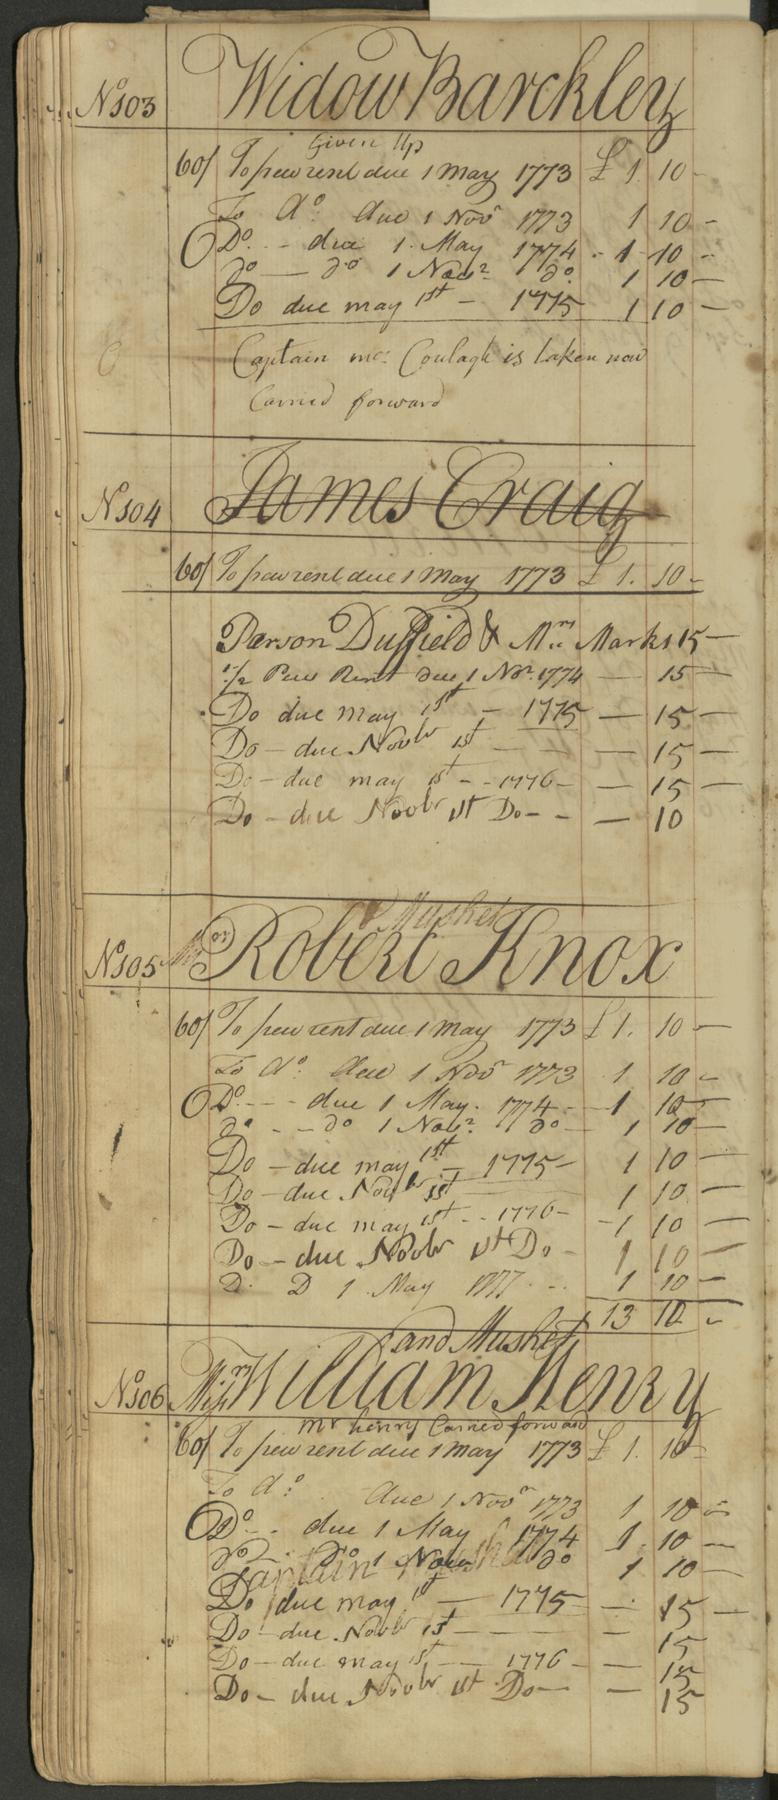 No 103 Widow Barckley
Given Up
60/ To pew rent due 1 May 1773 £ 1 10 -
To do due 1 Novr 1773 1 10 -
Do - due 1 May 1774 - 1 10 -
do — do 1 Novr do 1 10 —
Do due may 1st - 1775 1 10 —
Captain mc Coulagh is taken now
Carried forward
No 104 James Craig
60/ To pew rent due 1 May 1773 £ 1. 10 -
Parson Duffield & Mrs Marks 15 —
1/2 Pew Rent due 1 Novr 1774 — 15 —
Do due may 1st - 1775 — 15 —
Do - due Novbr 1st — 15 —
Do - due may 1st - - 1776 - — 15 —
Do - due Novbr 1st Do - - — 10
Mushet
No 105 or Robert Knox
60/ To pew rent due 1 May 1773 £ 1. 10 —
To do due 1 Novr 1773 1 10 -
Do - - - due 1 May. 1774 - 1 10 —
do - - do 1 Novr do - 1 10 —
Do - due may 1st - 1775 - 1 10 —
Do - due Novbr 1st 1 10 —
Do - due may 1st - - 1776 - - 1 10 —
Do - due Novbr 1st Do - 1 10 —
D. D 1 May 1777 - - 1 10 —
13 10 -
and Mushet
No 106 William Henry
Mr henry Carried forward
60/ To pew rent due 1 May 1773 £ 1. 10 -
To do due 1 Novr 1773 1 10 -
Do - - due 1 May 1774 1 10 —
do do 1 Novr do 1 10 —
Captain Mushet
Do due may 1st — 1775 — 15 —
Do - due Novbr 1st — — 15
Do - due may 1st — 1776 — 15
Do - due Novbr 1st Do — — 15